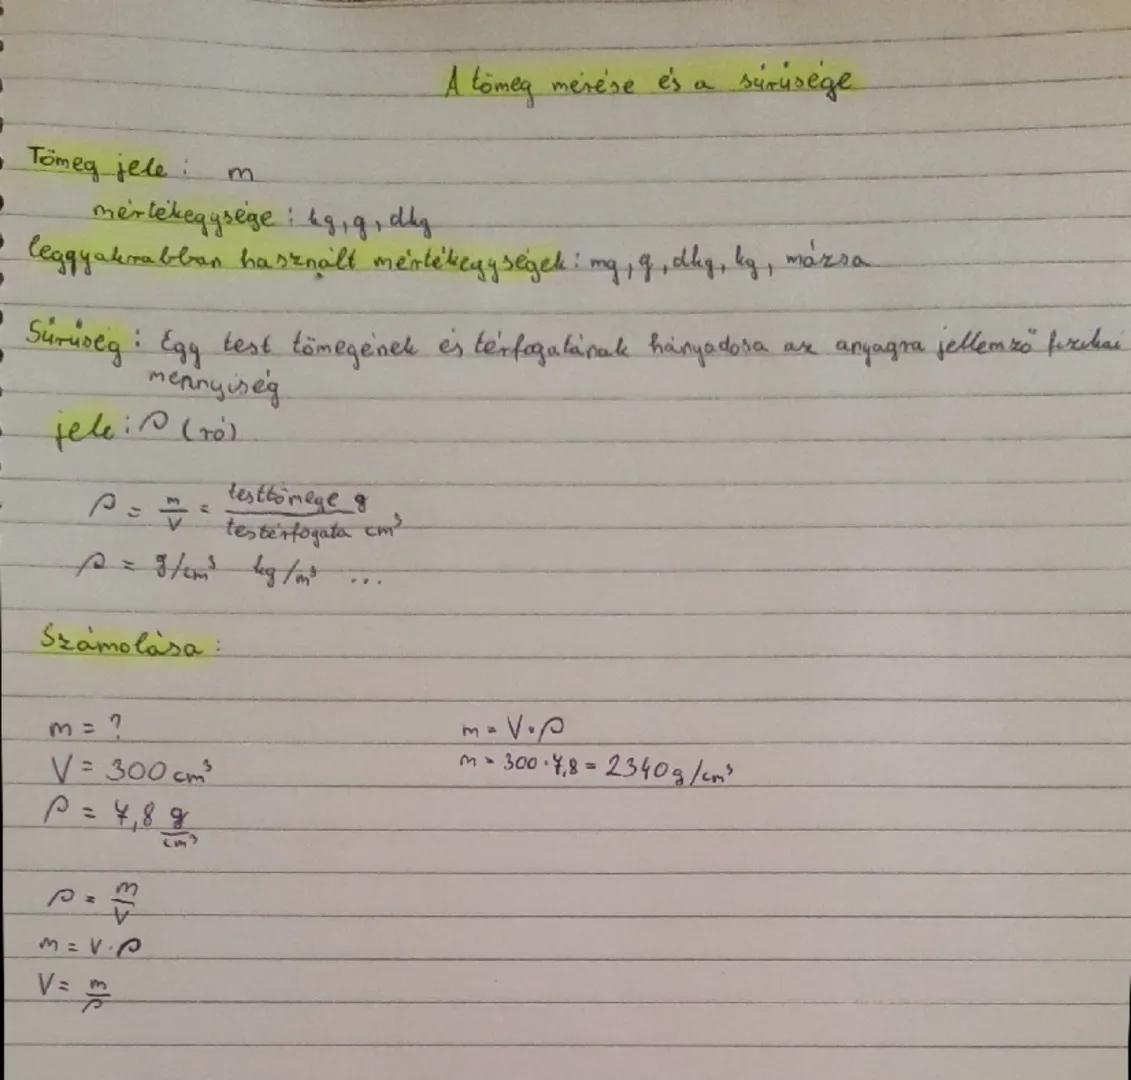 A tömeg mérése és a sűrűsége
Tömeg jele: m
mértékegysége: kg, g, dkg
leggyakrabban használt mértékegységek: mg, g, dkg, kg, mázsa
Sűrűség: Egy test tömegének és térfogatának hányadosa az anyagra jellemző fizikai
mennyiség
jele: ρ (ró)
ρ = m/V = testtömege g / testérfogata cm³
ρ = g/cm³ kg/m³ ...
Számolása:
m = ?
V = 300 cm³
ρ = 7,8 g/cm³
m = V·ρ
m = 300·7,8 = 2340 g/cm³
ρ = m/V
m = V·ρ
V = m/ρ